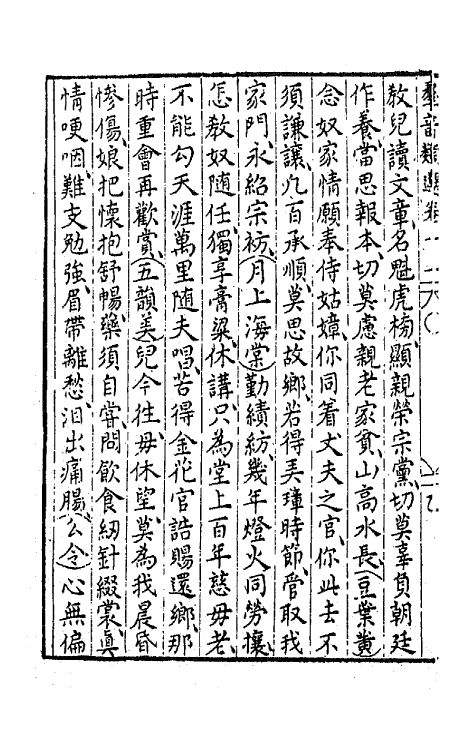 羣音類選卷
教兒讀文章、名魁虎榜、顯親榮宗黨、切莫辜負朝廷
作養、當思報本、切莫慮親老家貧、山高水長、（豆葉黃）
念奴家情願奉侍姑嫜、你同著丈夫之官、你此去不
須謙讓、凡百承順、莫思故鄉、若得弄璋時節、管取我
家門、永紹宗祊、（月上海棠）勤績紡、幾年燈火同勞攘、
怎教奴隨任、獨享膏粱、休講、只為堂上百年慈母老、
不能勾天涯萬里隨夫唱、若得金花官誥賜還鄉、那
時重會再歡賞、（五韻美）兒今往、母休望、莫為我晨昏
慘傷、娘把懷抱舒暢、藥須自嘗、問飲食紉針綴裳、真
情哽咽、難支勉強、眉帶離愁、泪出痛腸、（么令）心無偏